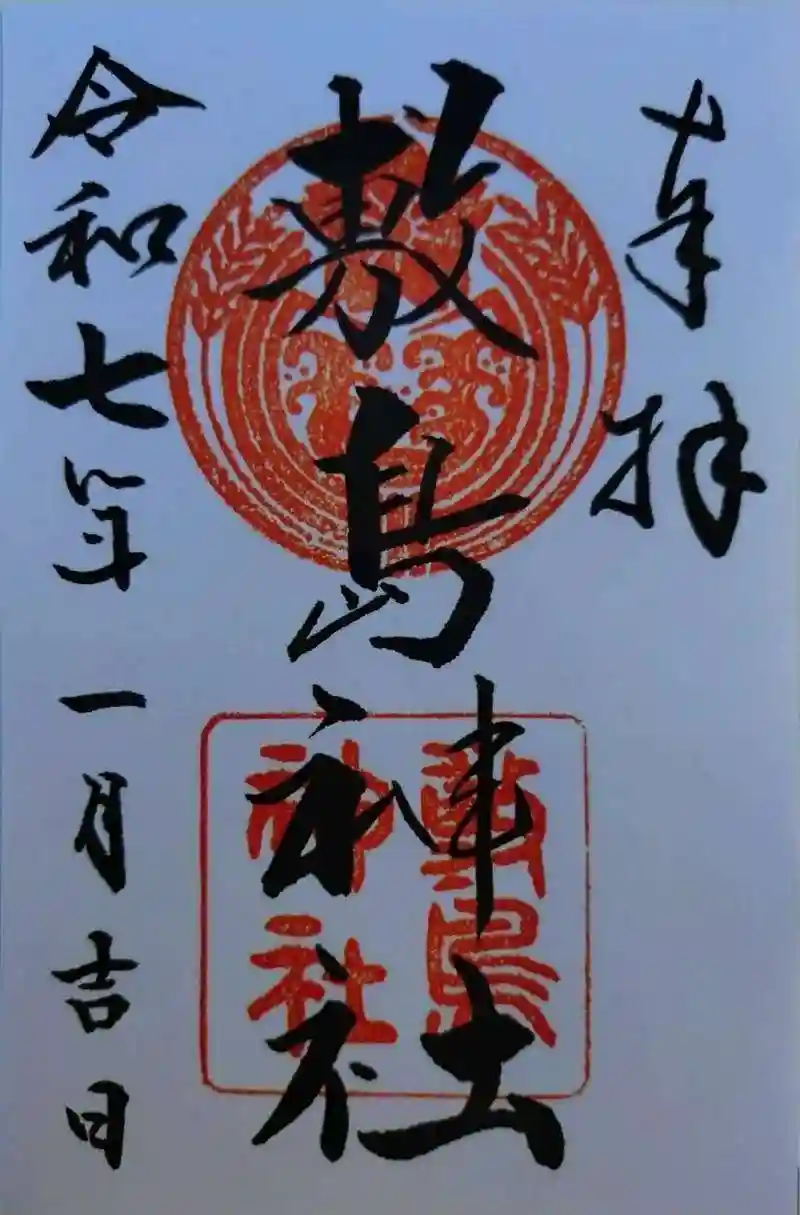 奉拝
敷島神社
敷島
神社
令和七年一月吉日